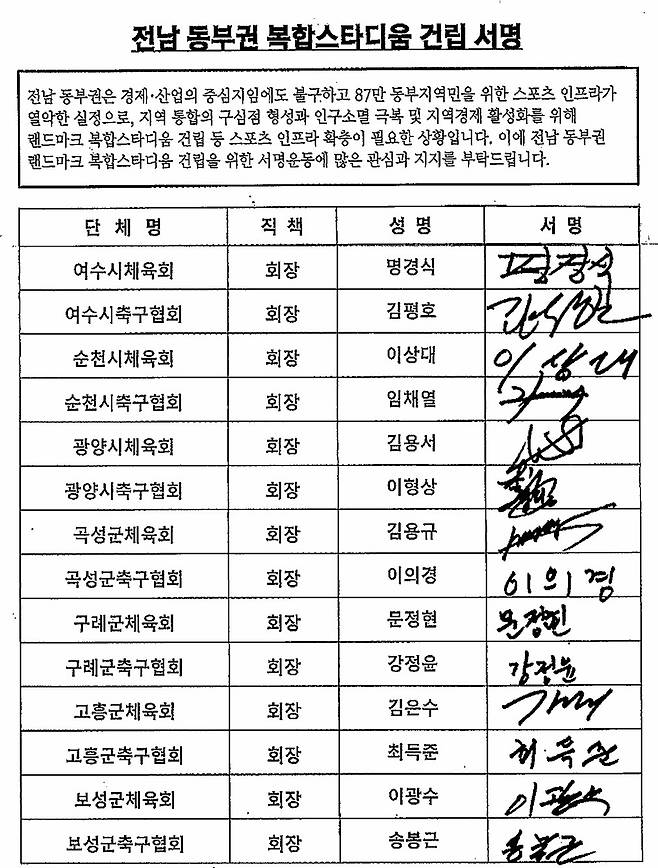 전남 동부권 복합스타디움 건립 서명
전남 동부권은 경제·산업의 중심지임에도 불구하고 87만 동부지역민을 위한 스포츠 인프라가
열악한 실정으로, 지역 통합의 구심점 형성과 인구소멸 극복 및 지역경제 활성화를 위해
랜드마크 복합스타디움 건립 등 스포츠 인프라 확충이 필요한 상황입니다. 이에 전남 동부권
랜드마크 복합스타디움 건립을 위한 서명운동에 많은 관심과 지지를 부탁드립니다.
단 체 명 직 책 성 명 서 명
여수시체육회 회장 명경식
여수시축구협회 회장 김평호
순천시체육회 회장 이상대 이상대
순천시축구협회 회장 임채열
광양시체육회 회장 김용서
광양시축구협회 회장 이형상
곡성군체육회 회장 김용규
곡성군축구협회 회장 이의경 이의경
구례군체육회 회장 문정현
구례군축구협회 회장 강정윤 강정윤
고흥군체육회 회장 김은수
고흥군축구협회 회장 최득준
보성군체육회 회장 이광수
보성군축구협회 회장 송봉근 송봉근